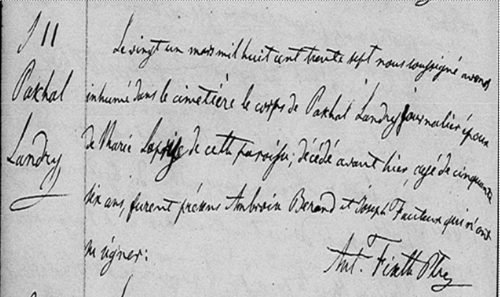 S 11
Paschal
Landry
Le vingt un mars mil huit cent trente sept nous soussigné avons
inhumé dans le cimetière le corps de Paschal Landry journalier époux
de Marie de cette paroisse, décédé avant hier, agé de cinquante
six ans, furent présens Ambroise et Joseph Fauteux qui n'ont
su signer.
Ant.